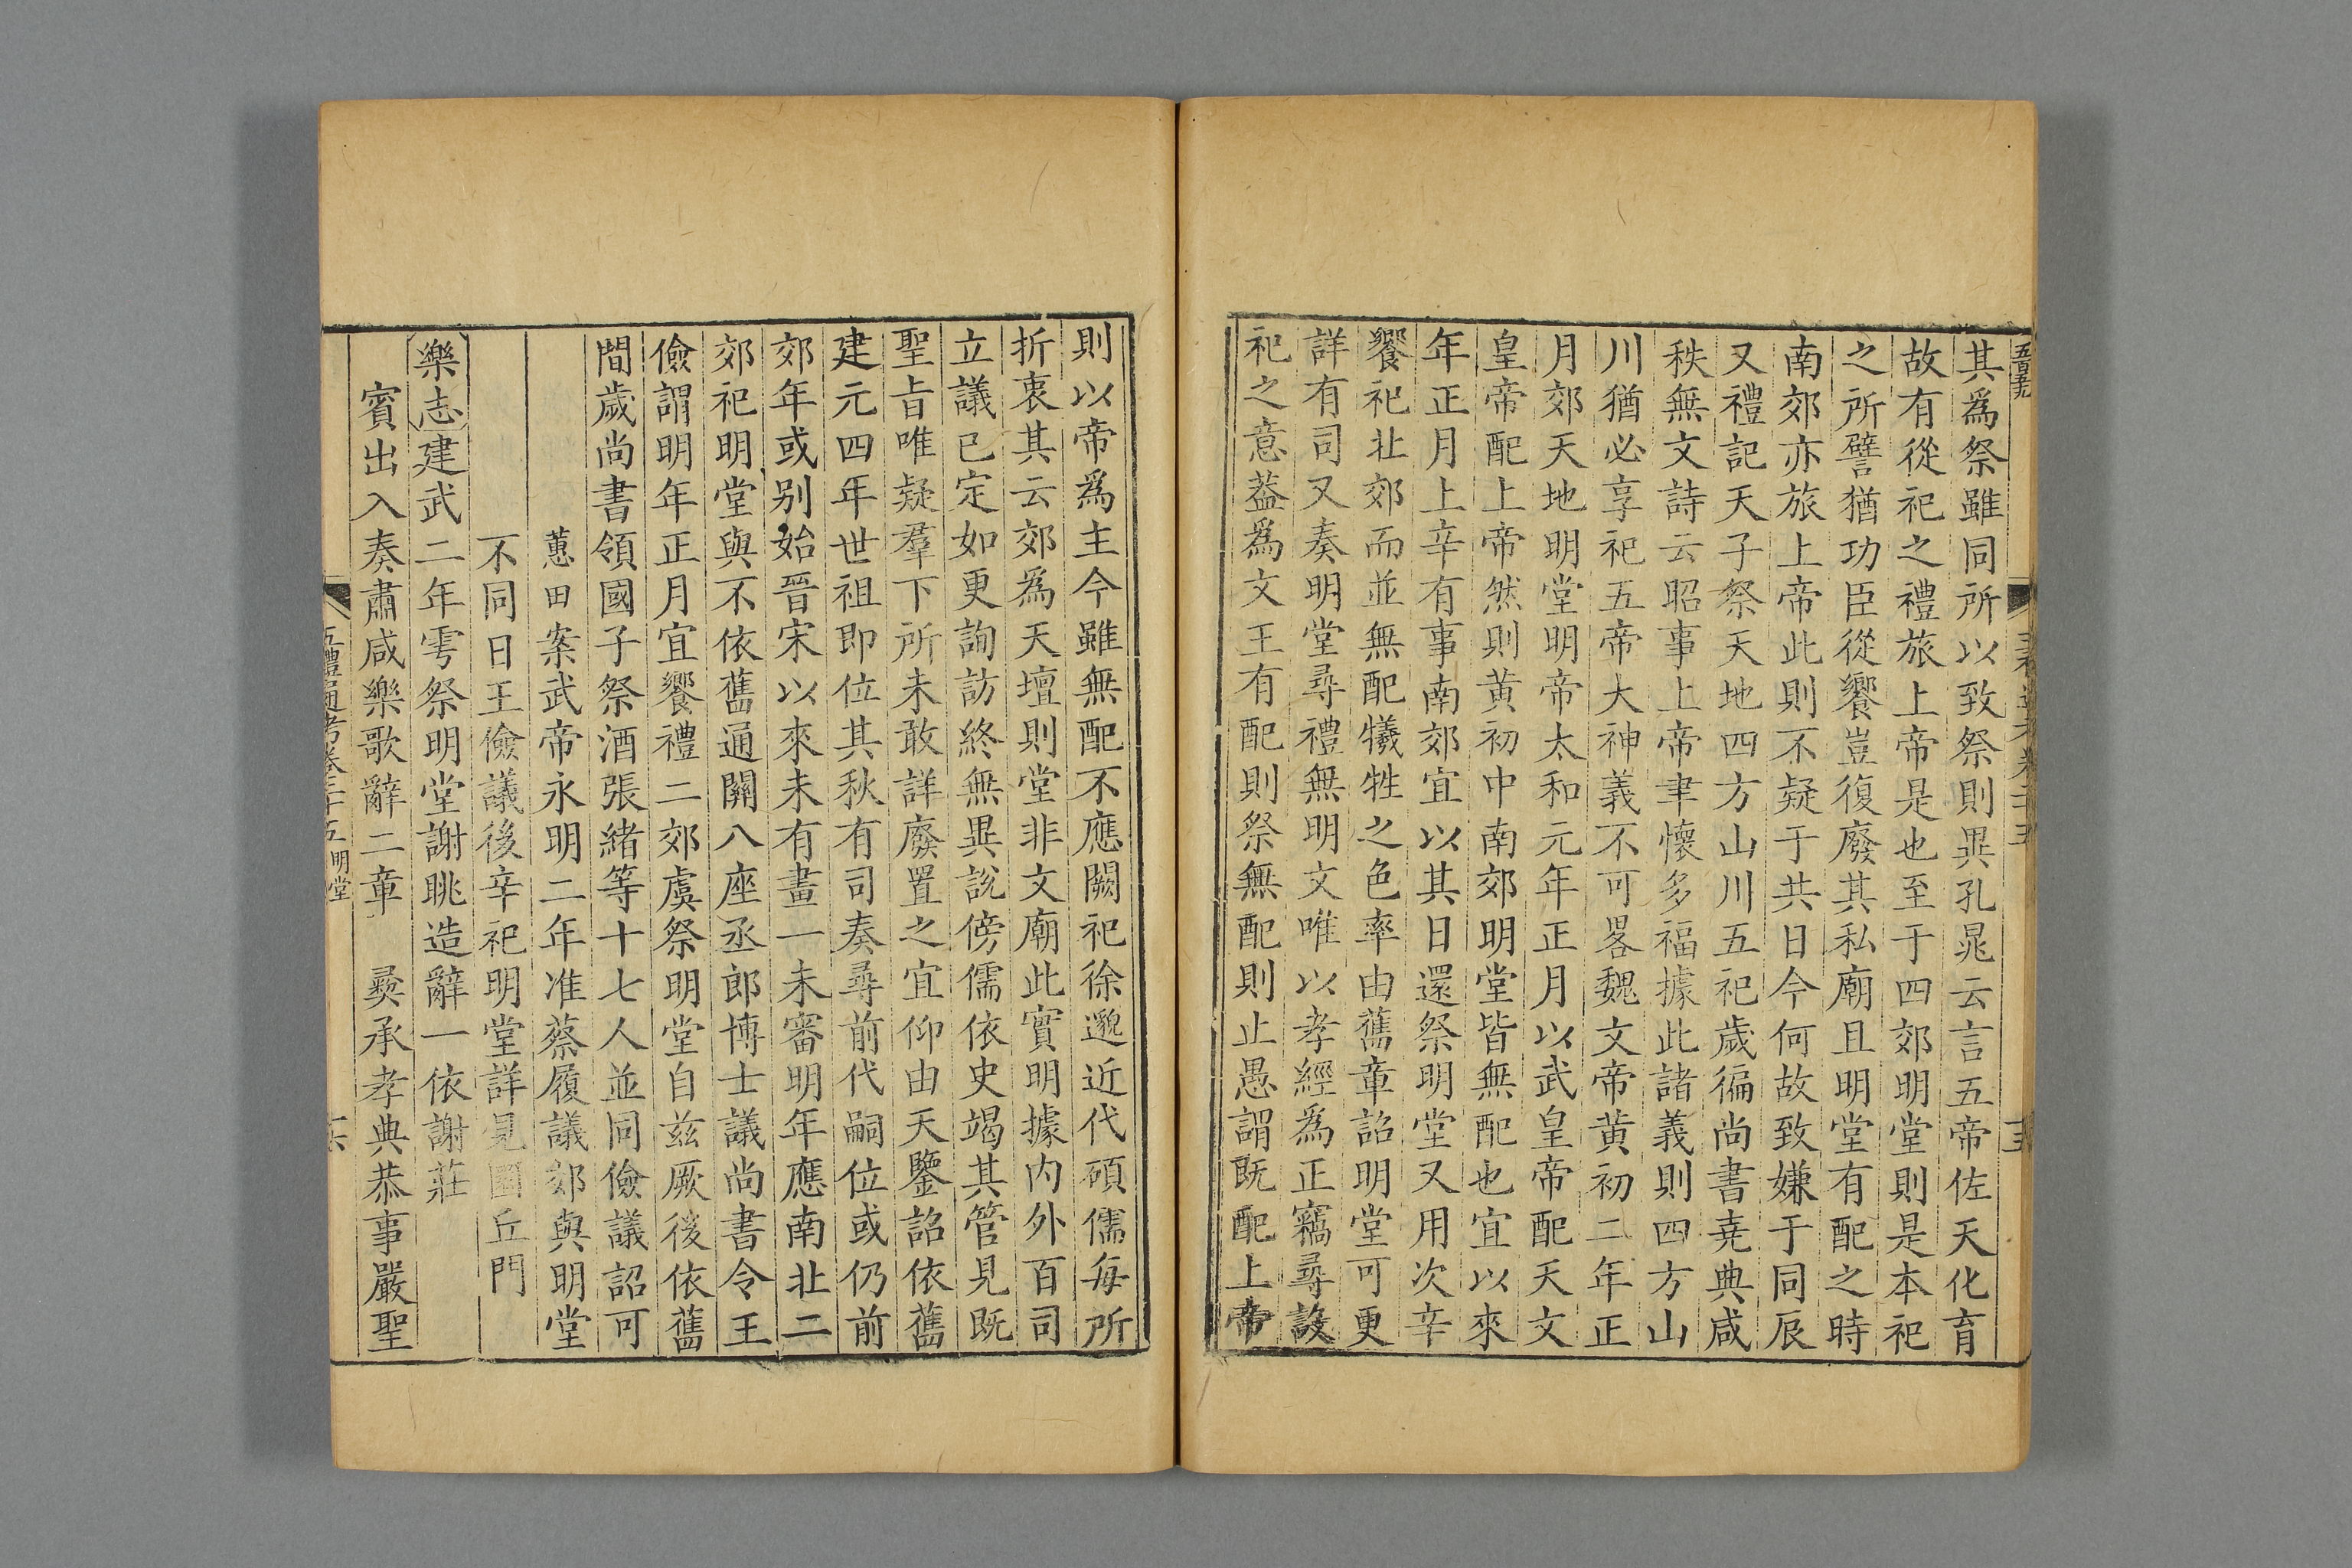 其爲祭雖同所以致祭則異孔晁云言五帝佐天化育
故有從祀之禮旅上帝是也至于四郊明堂則是本祀
之所譬猶功臣從饗豈復廢其私廟且明堂有配之時
南郊亦旅上帝此則不疑于共日今何故致嫌于同辰
又禮記天子祭天地四方山川五祀歲徧尚書堯典咸
秩無文詩云昭事上帝聿懷多福據此諸義則四方山
川猶必享祀五帝大神義不可畧魏文帝黃初二年正
月郊天地明堂明帝太和元年正月以武皇帝配天文
皇帝配上帝然則黃初中南郊明堂皆無配也宜以來
年正月上辛有事南郊宜以其日還祭明堂又用次辛
饗祀北郊而並無配犧牲之色率由舊章詔明堂可更
詳有司又奏明堂尋禮無明文唯以孝經爲正竊尋設
祀之意蓋爲文王有配則祭無配則止愚謂既配上帝
則以帝爲主今雖無配不應闕祀徐邈近代碩儒每所
折衷其云郊爲天壇則堂非文廟此實明據内外百司
立議已定如更詢訪終無異說傍儒依史竭其管見既
聖旨唯疑羣下所未敢詳廢置之宜仰由天鑒詔依舊
建元四年世祖即位其秋有司奏尋前代嗣位或仍前
郊年或别始晉宋以來未有畫一未審明年應南北二
郊祀明堂與不依舊通關八座丞郎博士議尚書令王
儉謂明年正月宜饗禮二郊虞祭明堂自兹厥後依舊
間歲尚書領國子祭酒張緒等十七人並同儉議詔可
蕙田案武帝永明二年准蔡履議郊與明堂
不同日王儉議後辛祀明堂詳見圜丘門
樂志建武二年雩祭明堂謝朓造辭一依謝莊
賓出入奏肅咸樂歌辭二章　彛承孝典恭事嚴聖
五禮通考卷二十五明堂
十六